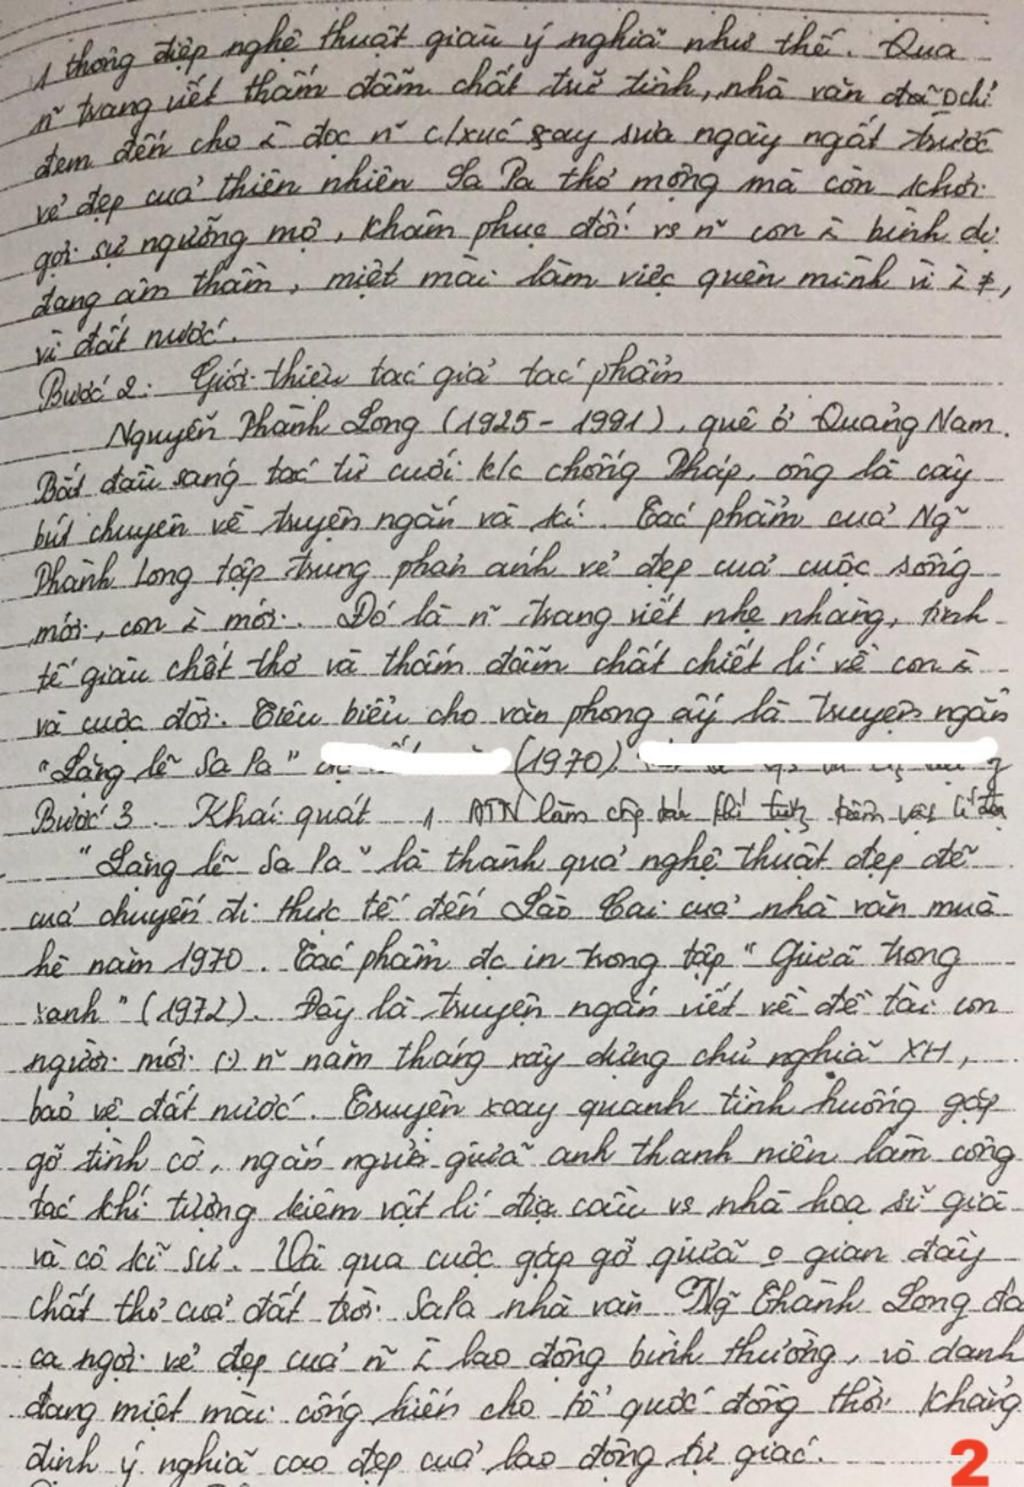 1 thông điệp nghệ thuật giàu ý nghĩa như thế. Qua
n~ trang viết thấm đẫm chất trữ tình, nhà văn đã 0 chỉ
đem đến cho i đọc n~ c/xúc say sưa ngây ngất trước
vẻ đẹp của thiên nhiên Sa Pa thơ mộng mà còn khơi
gợi sự ngưỡng mộ, khâm phục đối vs n~ con i bình dị
đang âm thầm, miệt mài làm việc quên mình vì i ≠,
vì đất nước.
Bước 2: Giới thiệu tác giả tác phẩm
Nguyễn Thành Long (1925 - 1991), quê ở Quảng Nam.
Bắt đầu sáng tác từ cuối k/c chống Pháp, ông là cây
bút chuyên về truyện ngắn và kí. Tác phẩm của Ng~
Thành Long tập trung phản ánh vẻ đẹp của cuộc sống
mới, con i mới. Đó là n~ trang viết nhẹ nhàng, tinh
tế giàu chất thơ và thấm đẫm chất chiết lí về con i
và cuộc đời. Tiêu biểu cho văn phong ấy là truyện ngắn
"Lặng lẽ Sa Pa" (1970)
Bước 3. Khái quát 1 ATN làm khí tượng kiêm vật lí địa
"Lặng lẽ Sa Pa" là thành quả nghệ thuật đẹp đẽ
của chuyến đi thực tế đến Lào Cai của nhà văn mùa
hè năm 1970. Tác phẩm đc in trong tập "Giữa trong
xanh" (1972). Đây là truyện ngắn viết về đề tài con
người mới (.) n~ năm tháng xây dựng chủ nghĩa XH,
bảo vệ đất nước. Truyện xoay quanh tình huống gặp
gỡ tình cờ, ngắn ngủi giữa anh thanh niên làm công
tác khí tượng kiêm vật lí địa cầu vs nhà hoạ sĩ già
và cô kĩ sư. Và qua cuộc gặp gỡ giữa 0 gian đầy
chất thơ của đất trời SaPa nhà văn Ng~ Thành Long đã
ca ngợi vẻ đẹp của n~ i lao động bình thường, vô danh
đang miệt mài cống hiến cho tổ quốc đồng thời khẳng
định ý nghĩa cao đẹp của lao động tự giác.
2